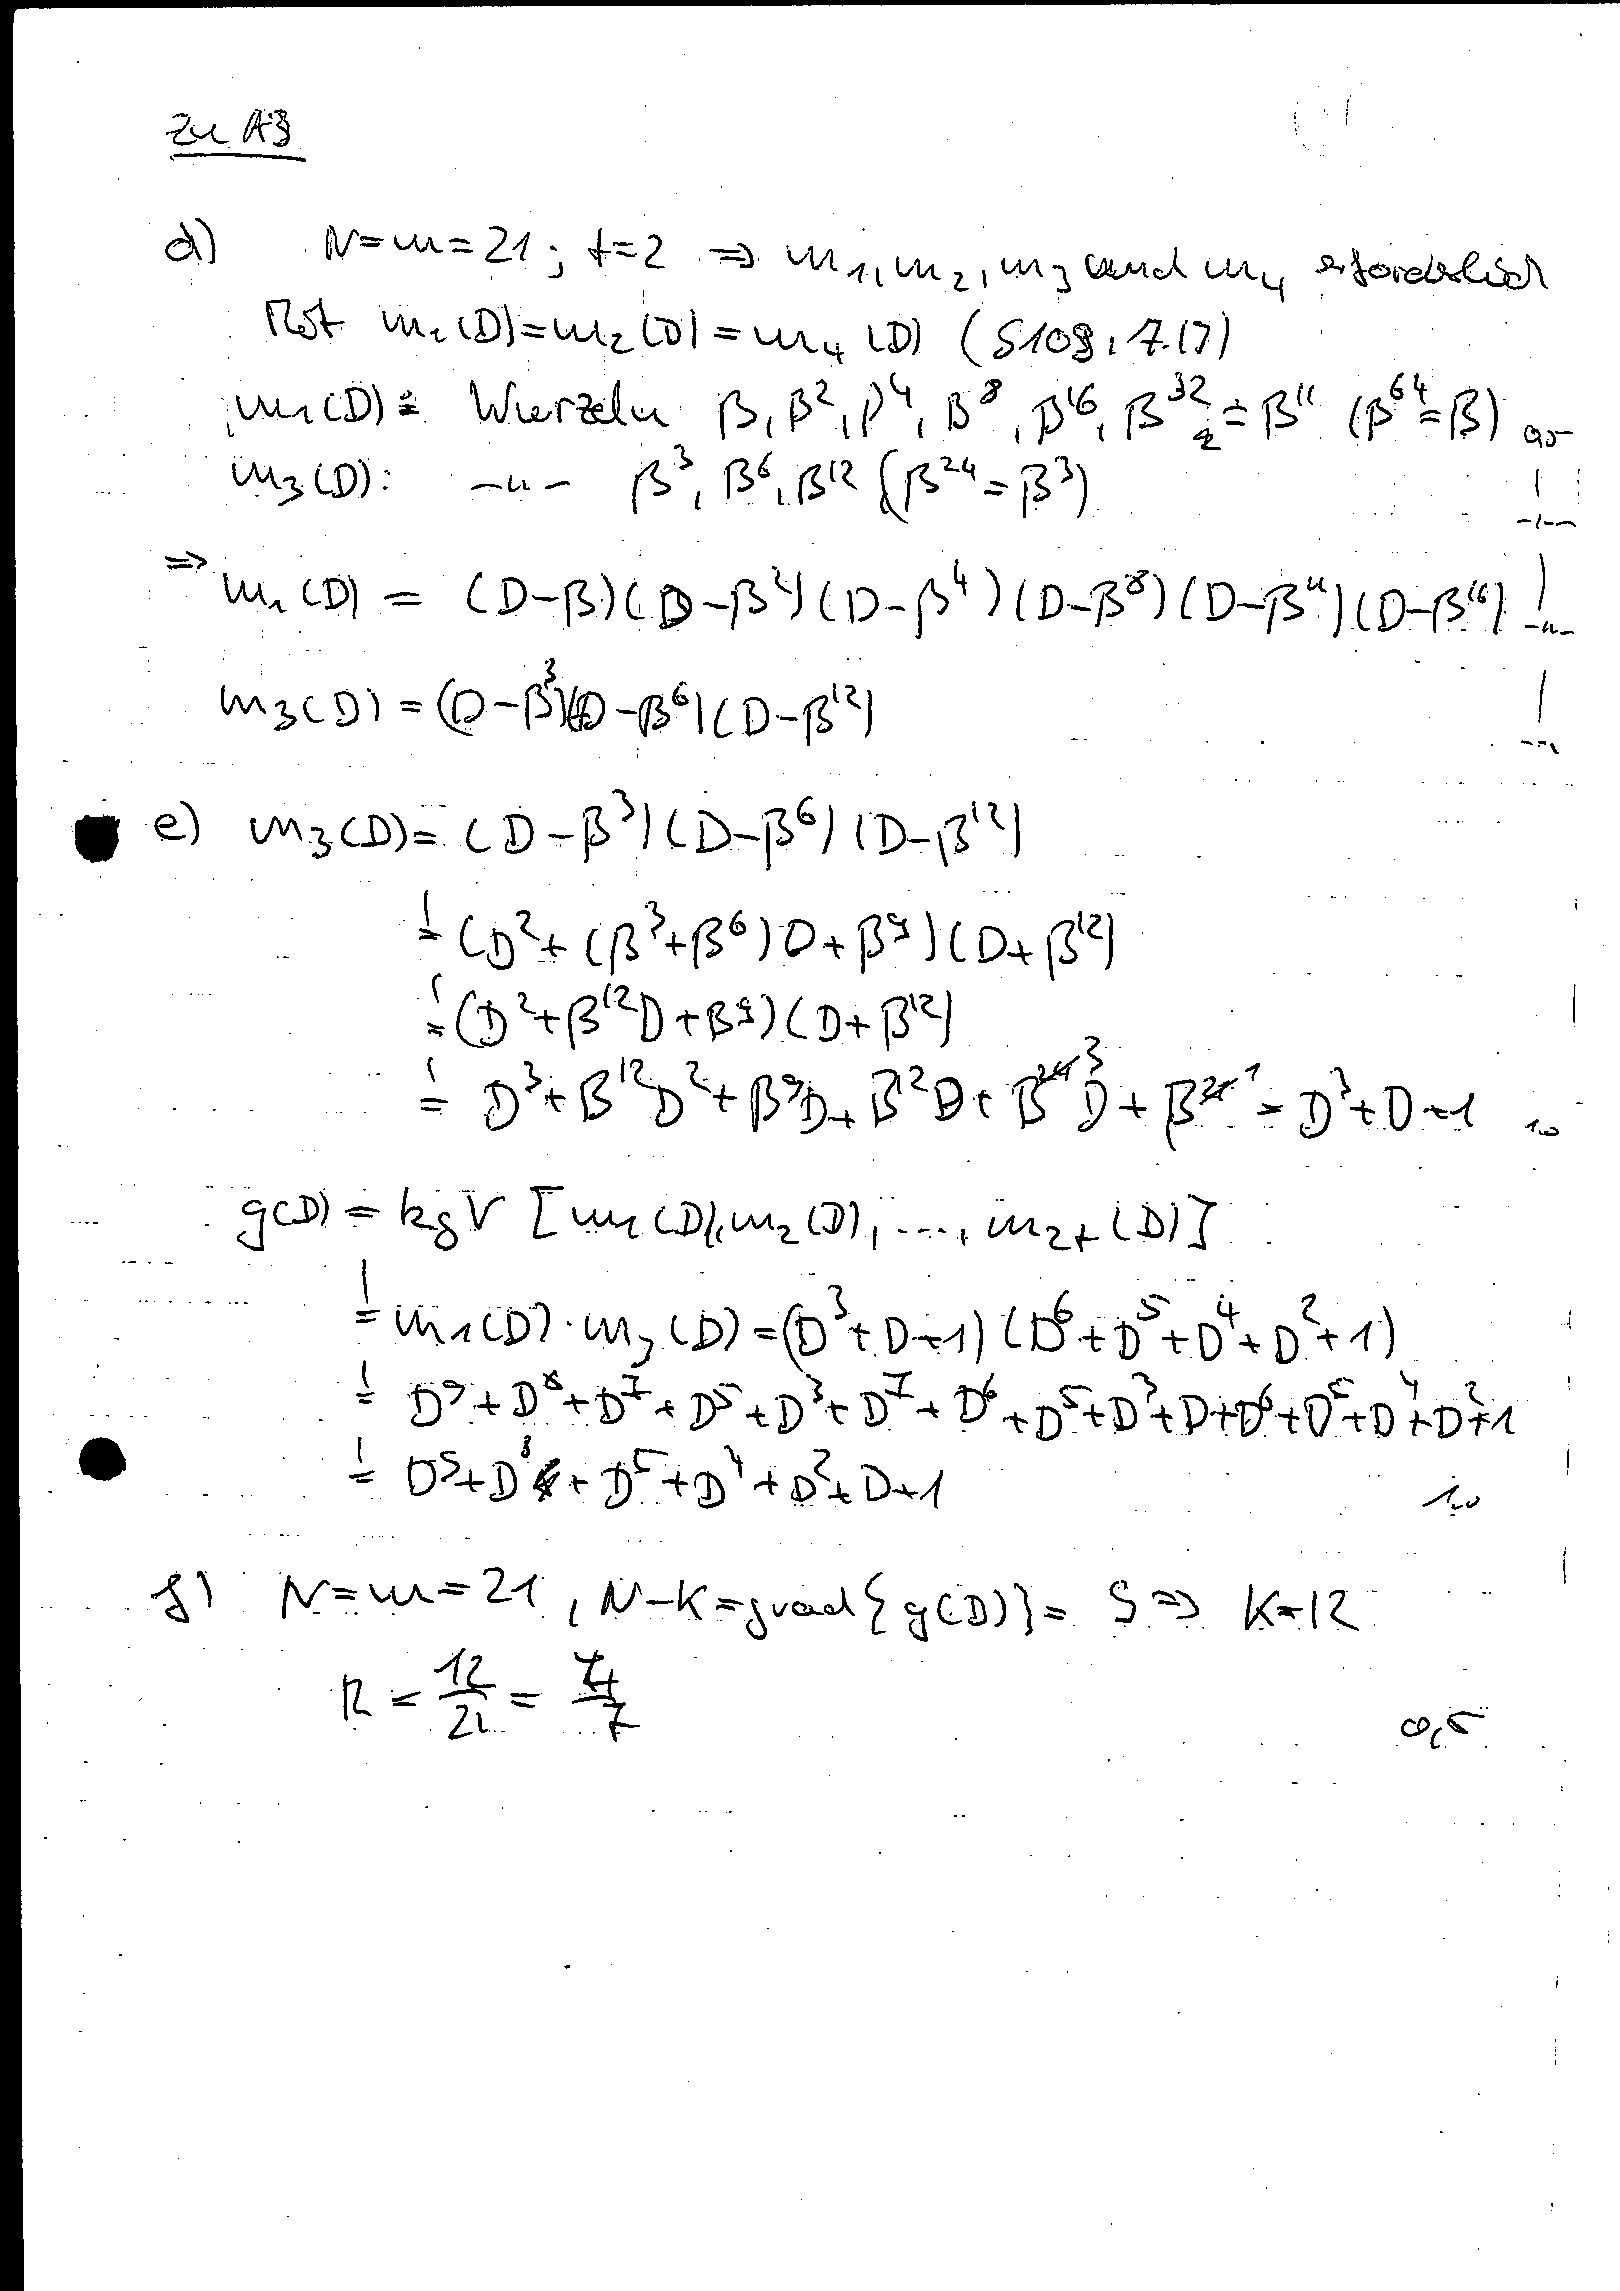 Zu A3
d) N=m=21; t=2 ⇒ m₁, m₂, m₃ und m₄ erforderlich
Mit m₁(D)=m₂(D)=m₄(D) (S109, 7.17)
m₁(D): Wurzeln β, β², β⁴, β⁸, β¹⁶, β³² = β¹¹ (β⁶⁴=β) 0,5
m₃(D): -"- β³, β⁶, β¹² (β²⁴=β³)
⇒ m₁(D) = (D-β)(D-β²)(D-β⁴)(D-β⁸)(D-β¹¹)(D-β¹⁶)
m₃(D) = (D-β³)(D-β⁶)(D-β¹²)
e) m₃(D) = (D-β³)(D-β⁶)(D-β¹²)
= (D²+(β³+β⁶)D+β⁹)(D+β¹²)
= (D²+β¹²D+β⁹)(D+β¹²)
= D³+β¹²D²+β⁹D+β¹²D+β³D+1 = D³+D+1 1,0
g(D) = kgV [m₁(D), m₂(D), ..., m₂ₜ(D)]
= m₁(D)·m₃(D) = (D³+D+1)(D⁶+D⁵+D⁴+D²+1)
= D⁹+D⁸+D⁷+D⁵+D³+D⁷+D⁶+D⁵+D³+D+D⁶+D⁵+D⁴+D²+1
= D⁹+D⁸+D⁵+D⁴+D²+D+1 1,0
f) N=m=21, N-K=grad{g(D)}= 9 ⇒ K=12
R = 12/21 = 4/7 0,5